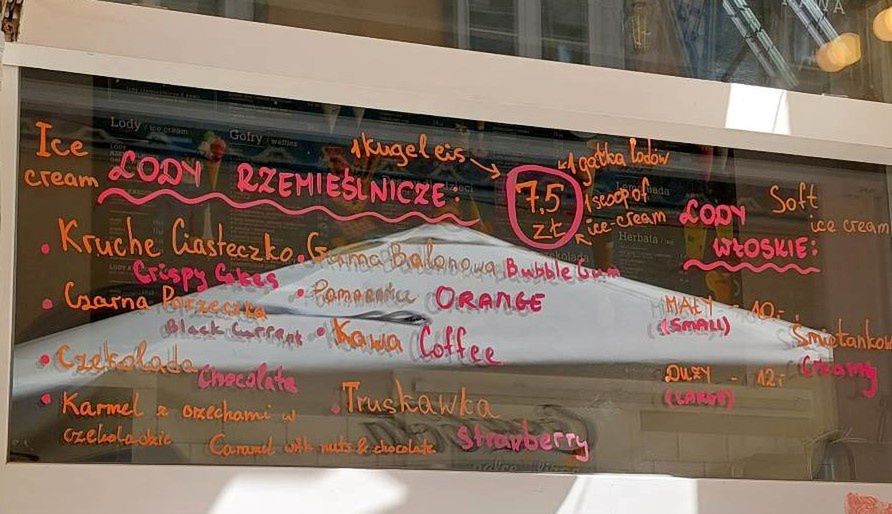 Lody / ice cream
Gofry / waffles
Ice cream
LODY RZEMIEŚLNICZE:
1 kugel eis
7,5 zł
1 gałka lodów
1 scoop of ice-cream
Herbata
• Kruche Ciasteczko
Crispy Cakes
• Czarna Porzeczka
Black Currant
• Czekolada
Chocolate
• Karmel z orzechami w
czekoladzie Caramel with nuts & chocolate
• Guma Balonowa Bubble Gum
• Pomarańcz ORANGE
• Kawa Coffee
• Truskawka
Strawberry
LODY WŁOSKIE:
Soft ice cream
MAŁY - 10,-
(SMALL)
DUŻY - 12,-
(LARGE)
Śmietankow
Creamy